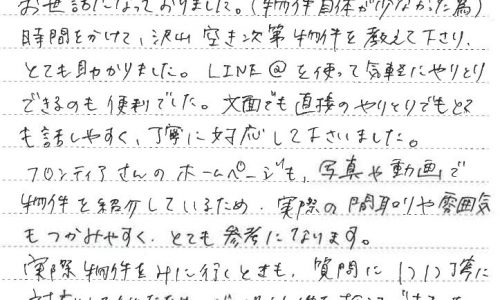 お世話になっておりました。(物件自体が少なかった為)
時間をかけて、沢山 空き次第 物件を教えて下さり、
とても助かりました。LINE@を使って気軽にやりとり
できるのも便利でした。文面でも直接のやりとりでもとて
も話しやすく、丁寧に対応して下さいました。
フロンティアさんのホームページも、写真や動画で
物件を紹介しているため、実際の間取りや雰囲気
もつかみやすく、とても参考になります。
実際物件をみに行くときも、質問に1つ1つ丁寧に